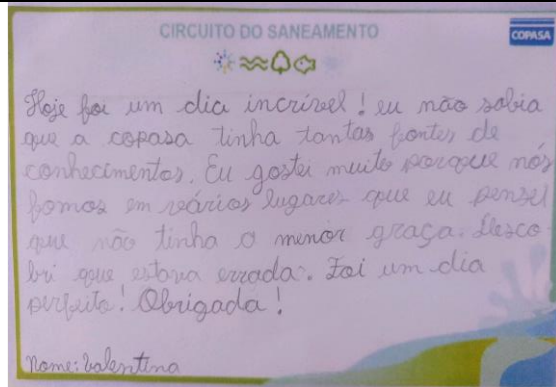 CIRCUITO DO SANEAMENTO
COPASA
Hoje foi um dia incrível! eu não sabia
que a copasa tinha tantas fontes de
conhecimentos. Eu gostei muito porque nós
fomos em vários lugares que eu pensei
que não tinha o menor graça. Desco
bri que estava errada. Foi um dia
perfeito! Obrigada!
Nome: Valentina